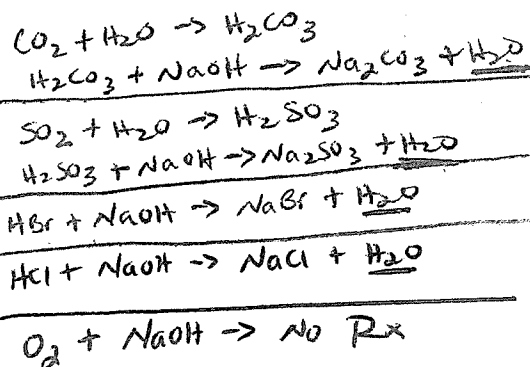 CO₂ + H₂O → H₂CO₃
H₂CO₃ + NaOH → Na₂CO₃ + H₂O
SO₂ + H₂O → H₂SO₃
H₂SO₃ + NaOH → Na₂SO₃ + H₂O
HBr + NaOH → NaBr + H₂O
HCl + NaOH → NaCl + H₂O
O₂ + NaOH → No Rx